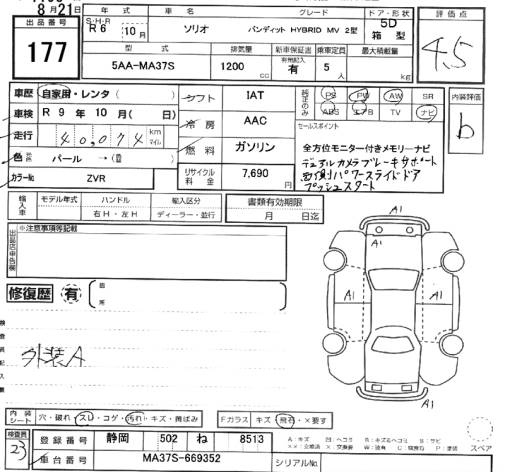 8月21日
出品番号
177
年式 車名 グレード ドア・形状
S・H・R
R6 10月 ソリオ バンディット HYBRID MV 2型 5D 箱型
型式 排気量 新車保証書 乗車定員 最大積載量
有無記入
5AA-MA37S 1200cc 有 5人 kg
評価点
4.5
車歴 自家用・レンタ( )
車検 R 9年 10月( 日)
走行 40,074 km マイル
色 パール →( )
カラーNo ZVR
シフト IAT
冷房 AAC
燃料 ガソリン
リサイクル料金 7,690円
純正のみ
PS PW AW SR
ABS エアB TV ナビ
セールスポイント
全方位モニター付きメモリーナビ
デュアルカメラブレーキサポート
両側パワースライドドア
プッシュスタート
内装評価
b
輸入車 モデル年式 ハンドル 輸入区分
右H・左H ディーラー・並行
書類有効期限
月 日迄
※注意事項等記載
修復歴 有
箇所
外装A
A1
A1
A1
A1
A1
内装シート 穴・破れ・スレ・コゲ・汚れ・キズ・黄ばみ
Fガラス キズ・飛石・×要す
検査員
23
登録番号 静岡 502 ね 8513
車台番号 MA37S-669352
シリアルNo.
スペア